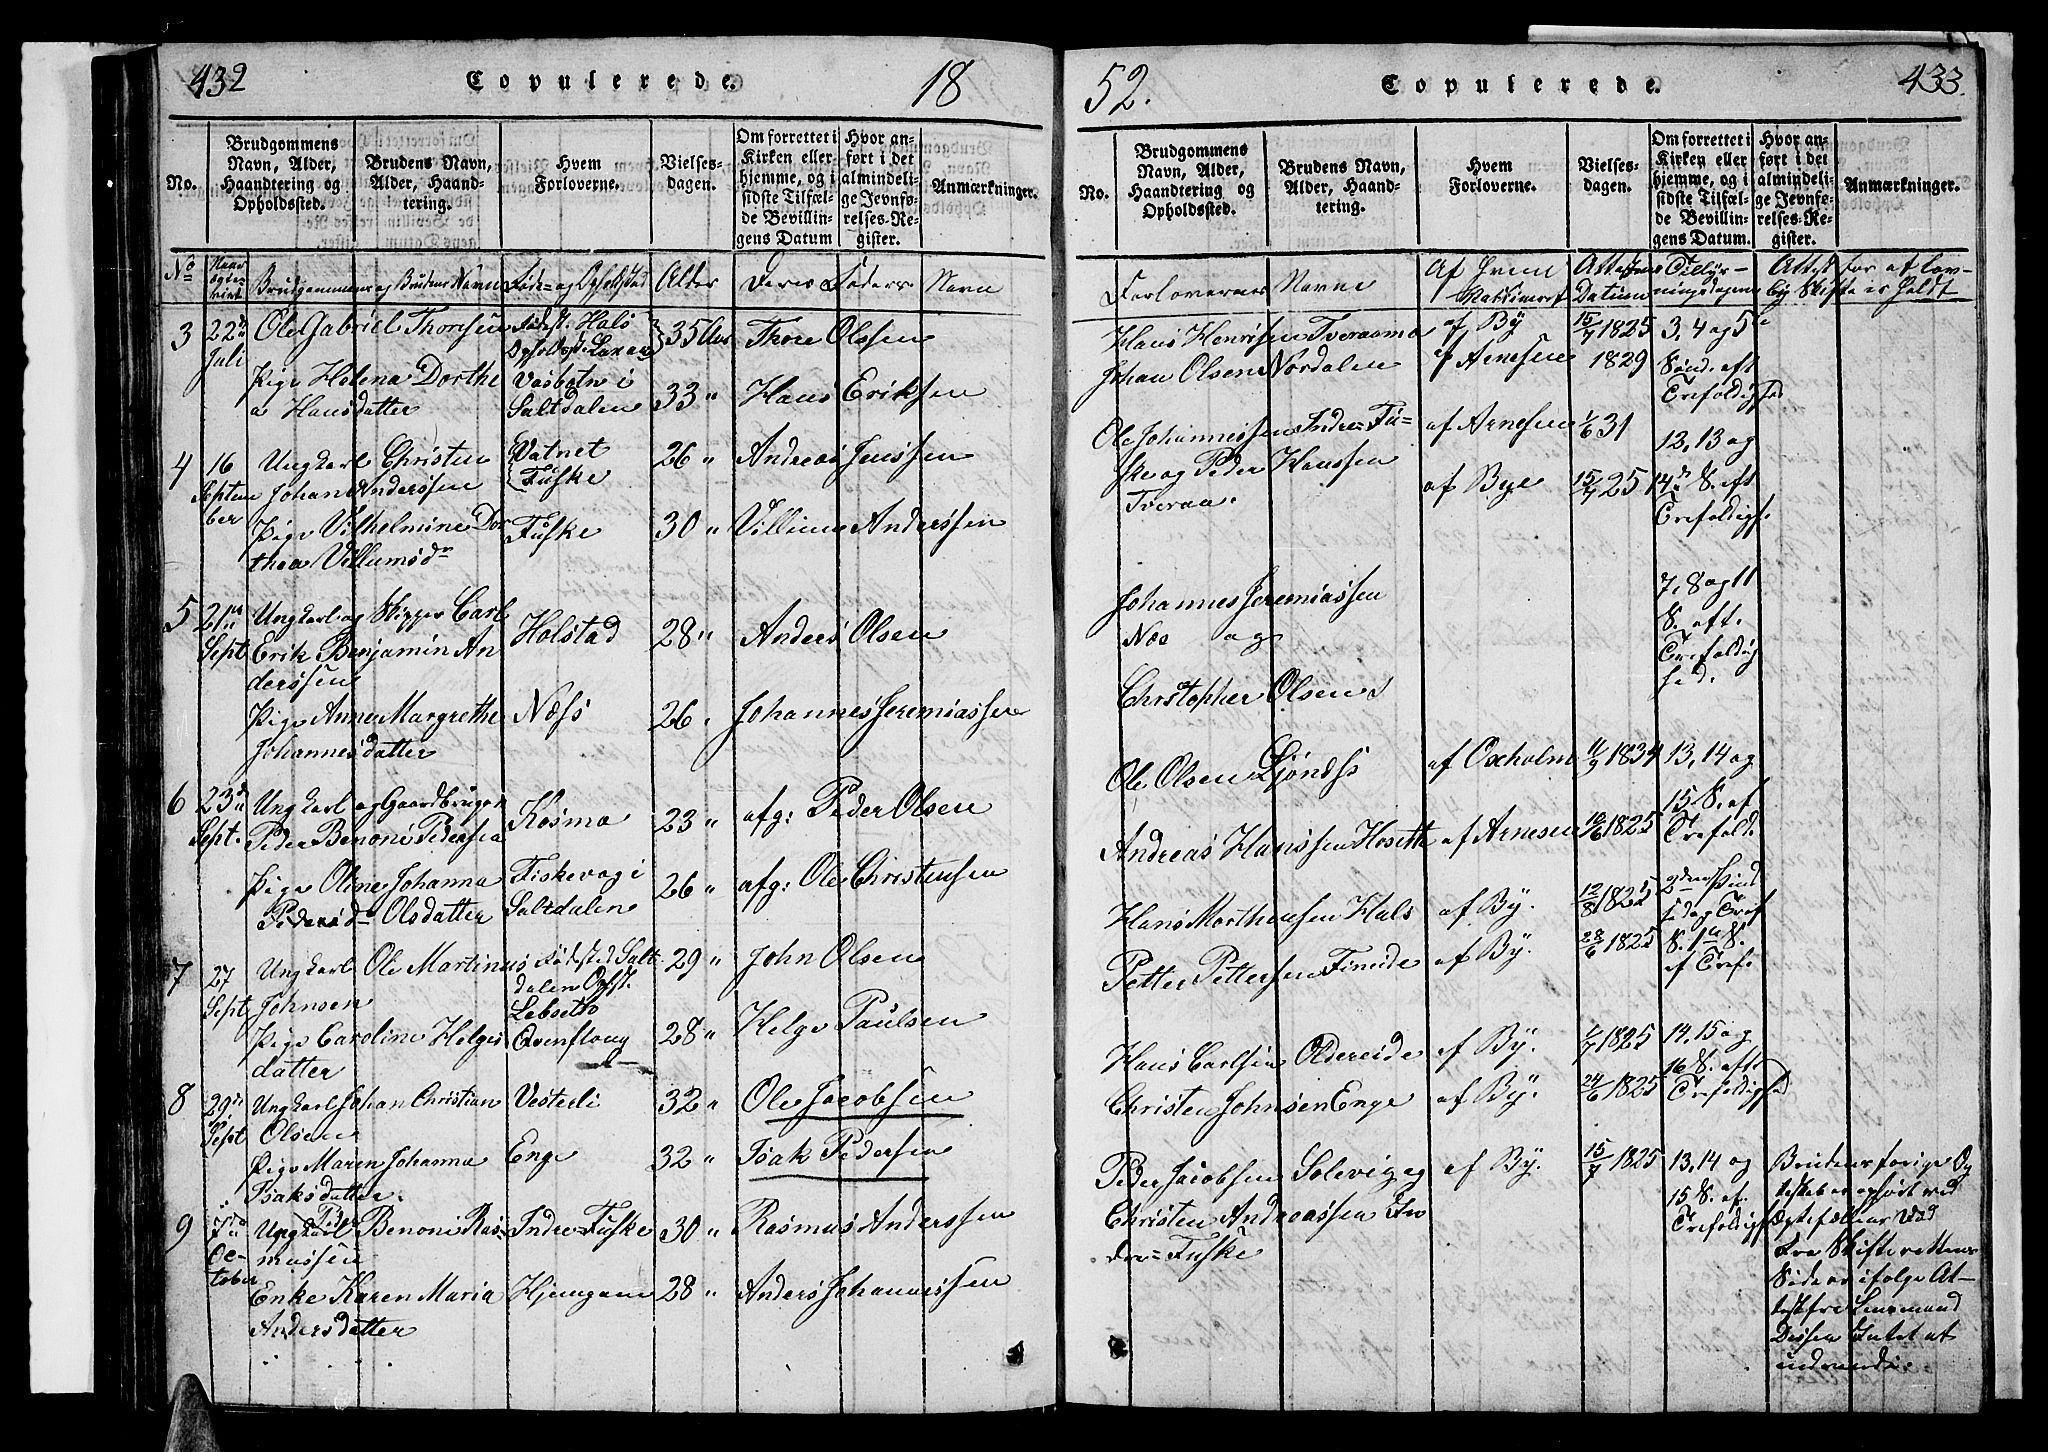 432 Copulerede. 18
No.
Brudgommens Navn, Alder, Haandtering og Opholdssted.
Brudens Navn, Alder, Haandtering.
Hvem Forloverne.
Vielsesdagen.
Om forrettet i Kirken eller hjemme, og i sidste Tilfælde Bevillingens Datum
Hvor anført i det almindelige Jevnførelses-Register.
Anmærkninger.
No Brudgommens og Brudens Navn Føde- og Opholdsted Alder Deres Faders Navn
3 22de Juli Ole Gabriel Thoresen Fødest. Hals 35 Aar Thore Olssen
Pige Helena Dorthe
a Hansdatter Vasbotn i Saltdalen 33 " Hans Eriksen
4 16 September Ungkarl Christen
Johan Anderssen Vatnet Fuske 26 " Andreas Jenssen
Pige Vilhelmine Dor
thea Villumsdr Fuske 30 " Villum Anderssen
5 21de Sept Ungkarl og Skipper Carl
Erik Benjamin An
derssen Holstad 28 " Anders Olsen
Pige Anne Margrethe
Johannesdatter Næss 26 " Johannes Jeremiassen
6 23de Sept. Ungkarl og Gaardbruger
Peder Benoni Pedersen Kosmo 23 " afg: Peder Olsen
Pige Oline Johanna
Pedersd Olsdatter Fiskevag i Saltdalen 26 " afg: Ole Christensen
7 27 Sept Ungkarl Ole Martinus
Johnsen Fødested Saltdalen Opst. 29 " John Olsen
Pige Caroline Helges
datter Evenstong 28 " Helge Paulsen
8 29de Sept Ungkarl Johan Christian
Olsen Vesterli 32 " Ole Jacobsen
Pige Maren Johanna
Isaksdatter. Enge 32 " Isak Pedersen
9 7de October Ungkarl Peder Benoni Ras-
mussen Indre-Fuske 30 " Rasmus Anderssen
Enke Karen Maria
Andersdatter Hjemgam 28 " Anders Johannessen
52. Copulerede. 433.
No.
Brudgommens Navn, Alder, Haandtering og Opholdssted.
Brudens Navn, Alder, Haandtering.
Hvem Forloverne.
Vielsesdagen.
Om forrettet i Kirken eller hjemme, og i sidste Tilfælde Bevillingens Datum.
Hvor anført i det almindelige Jevnførelses-Register.
Anmærkninger.
Forlovernes Navne Af Hvem Vakcineret Attestens Datum Attest for at lov-
lig Skifte er holdt
Hans Henrssen Tveraamo af By 15/7 1825 3, 4 og 5te
Johan Olsen Nordalen af Arnesen 1829 Sønd. eft Trefoldighed
Ole Johannessen Indre-Fu-
ske og Peder Hanssen
Tveraa. af Arnesen 1/6 31 12, 13 og
af Bye 15/7 25 14de S. eft Trefoldigh.
Johannes Jeremiassen
Næs og
Christopher Olsen 7, 8 og 11
S. eft. Trefoldighed.
Ole Olsen af Oxholm 11/9 1834 13, 14 og
Andreas Hanssen Hoseth af Arnesen 10/6 1825 15 S. af Trefold.
Hans Morthensen Hals af By. 12/8 1825
Petter Pettersen Fineide af By. 28/6 1825
Hans Carlsen Oldereide af By. 1825 14, 15 og
Christen Johnsen Enge af By. 24/6 1825 16 S. eft Trefoldighed
Peder Jacobsen Solevig og
Christen Andreassen In
dre-Fuske af By. 15/7 1825 13, 14 og
15 S. af. Trefoldigh.
Brudens forige Æg
teskab er ophørt ved
Ægtefællens Død
Fra Skifterettens
Side er ifølge At-
test fra Lensmand
Intet at
indvende.